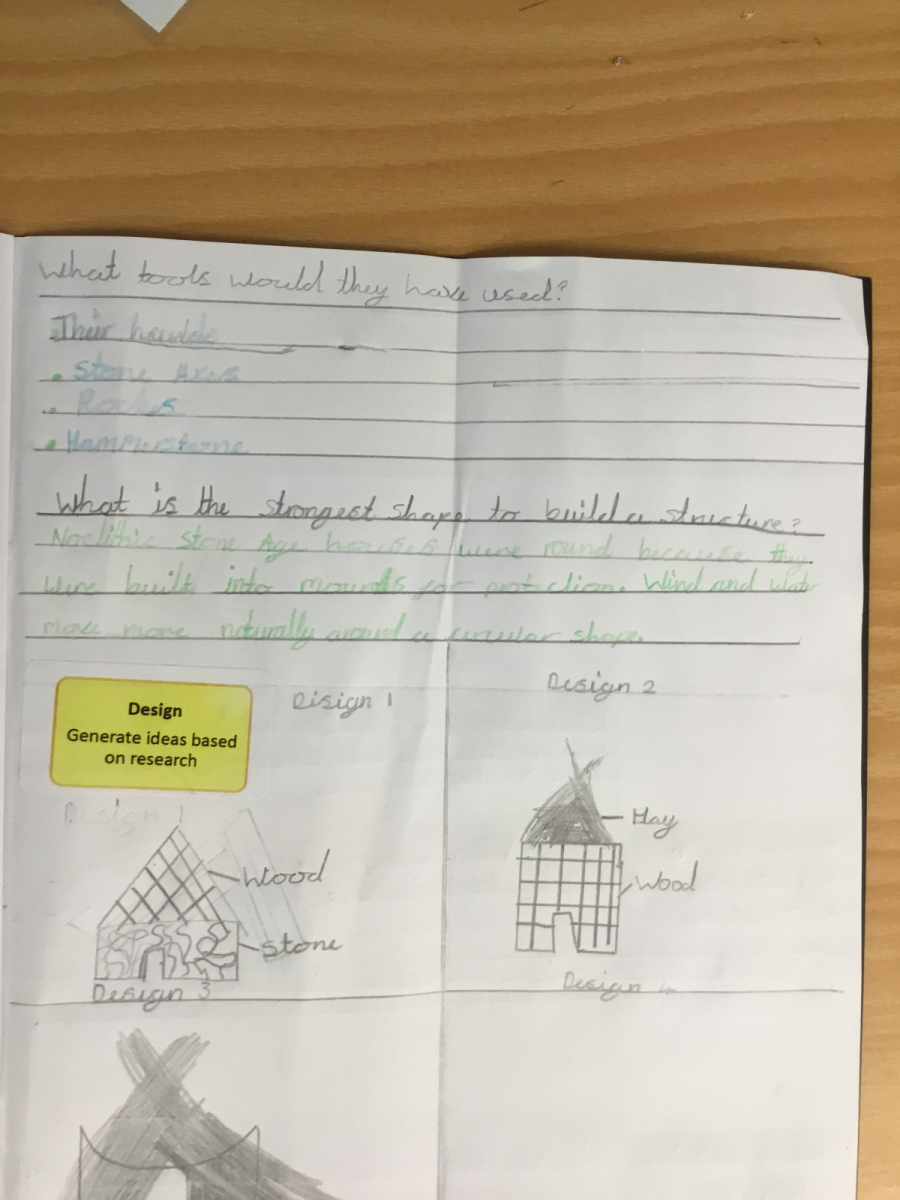 What tools would they have used?
Their hands
• Stone Axes
• Rocks
• Hammerstone
What is the strongest shape to build a structure?
Neolithic Stone Age houses were round because they
were built into mounds for protection. Wind and water
move more naturally around a circular shape.
Design
Generate ideas based
on research
Disign 1
Design 2
Design 1
Wood
Stone
Hay
Wood
Design 3
Design 4